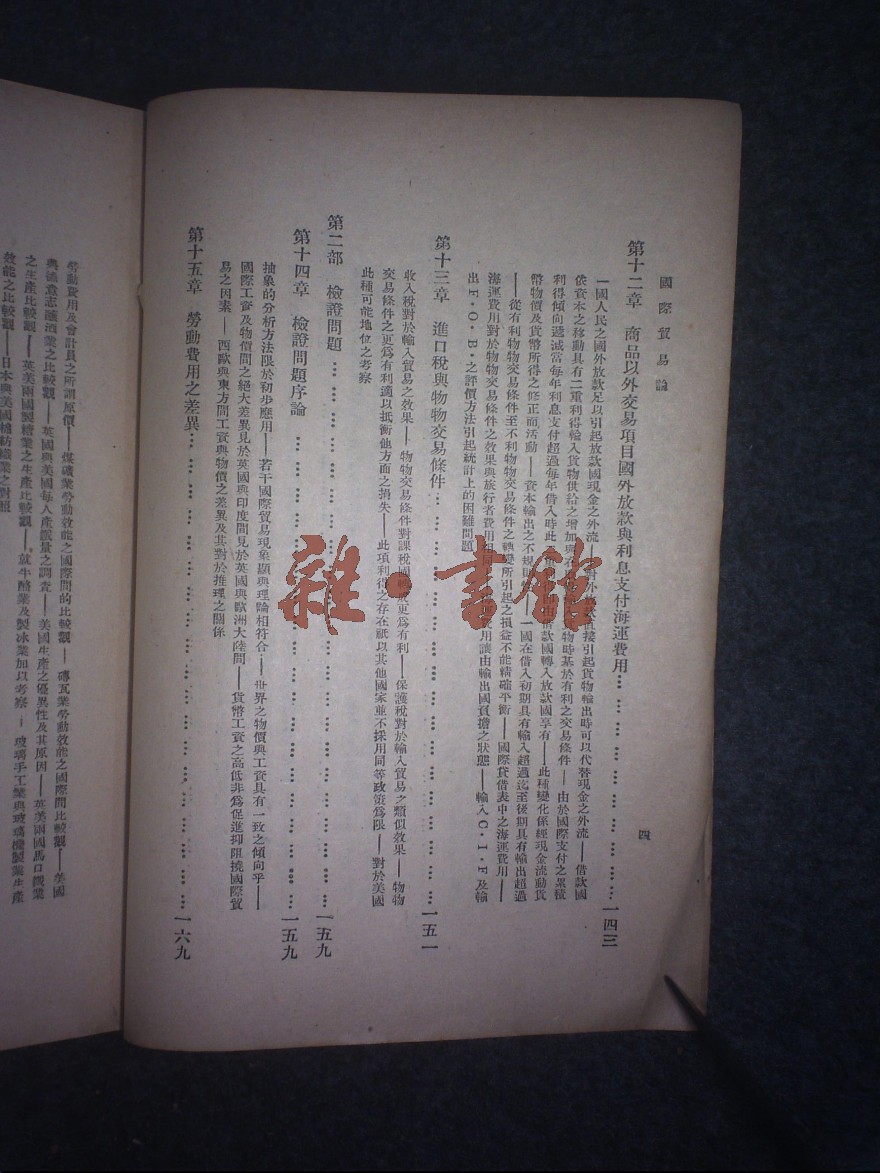 國際貿易論
四
第十二章 商品以外交易項目國外放款與利息支付海運費用……一四三
一國人民之國外放款足以引起放款國現金之外流——對外
接引起貨物輸出時可以代替現金之外流——借款國
依資本之移動具有二重利得輸入貨物供給之增加與在
物時基於有利之交易條件——由於國際支付之累積
利得傾向遞減當每年利息支付超過每年借入時此
借款國轉入放款國享有——此種變化係經現金流動貨
幣物價及貨幣所得之修正而活動——資本輸出之不規則
——一國在借入初期具有輸入超過迄至後期具有輸出超過
——從有利物物交易條件至不利物物交易條件之轉變所引起之損益不能精確平衡——國際貸借表中之海運費用——
海運費用對於物物交易條件之效果與旅行者費用
費用讓由輸出國負擔之狀態——輸入C.I.F及輸
出F.O.B.之評價方法引起統計上的困難問題
第十三章 進口稅與物物交易條件……一五一
收入稅對於輸入貿易之效果——物物交易條件對課稅國轉
更爲有利——保護稅對於輸入貿易之類似效果——物物
交易條件之更爲有利適以抵衡他方面之損失——此項利得之存在祇以其他國家並不採用同等政策爲限——對於美國
此種可能地位之考察
第二部 檢證問題……一五九
第十四章 檢證問題序論……一五九
抽象的分析方法限於初步應用——若干國際貿易現象顯與理論相符合——世界之物價與工資具有一致之傾向乎——
國際工資及物價間之絕大差異見於英國與印度間見於英國與歐洲大陸間——貨幣工資之高低非爲促進抑阻撓國際貿
易之因素——西歐與東方間工資與物價之差異及其對於推理之關係
第十五章 勞動費用之差異……一六九
勞動費用及會計員之所謂原價——煤礦業勞動效能之國際間的比較觀——磚瓦業勞動效能之國際間比較觀——英國
與德意志
業之比較觀——英國與美國每人產鐵量之調查——美國生產之優異性及其原因——英美兩國馬口鐵業
之生產比較觀——英美兩國製糖業之生產比較觀——就牛酪業及製冰業加以考察——玻璃手工業與玻璃機製業生產
效能之比較觀——日本與美國棉紡織業之對照
雜·書館